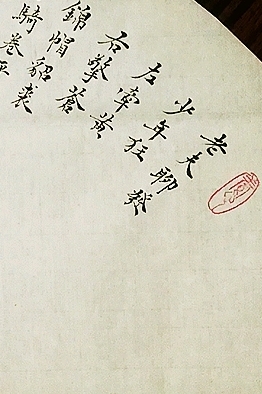 老夫聊發
少年狂
左牽黄
右擎蒼
錦帽貂裘
騎卷平